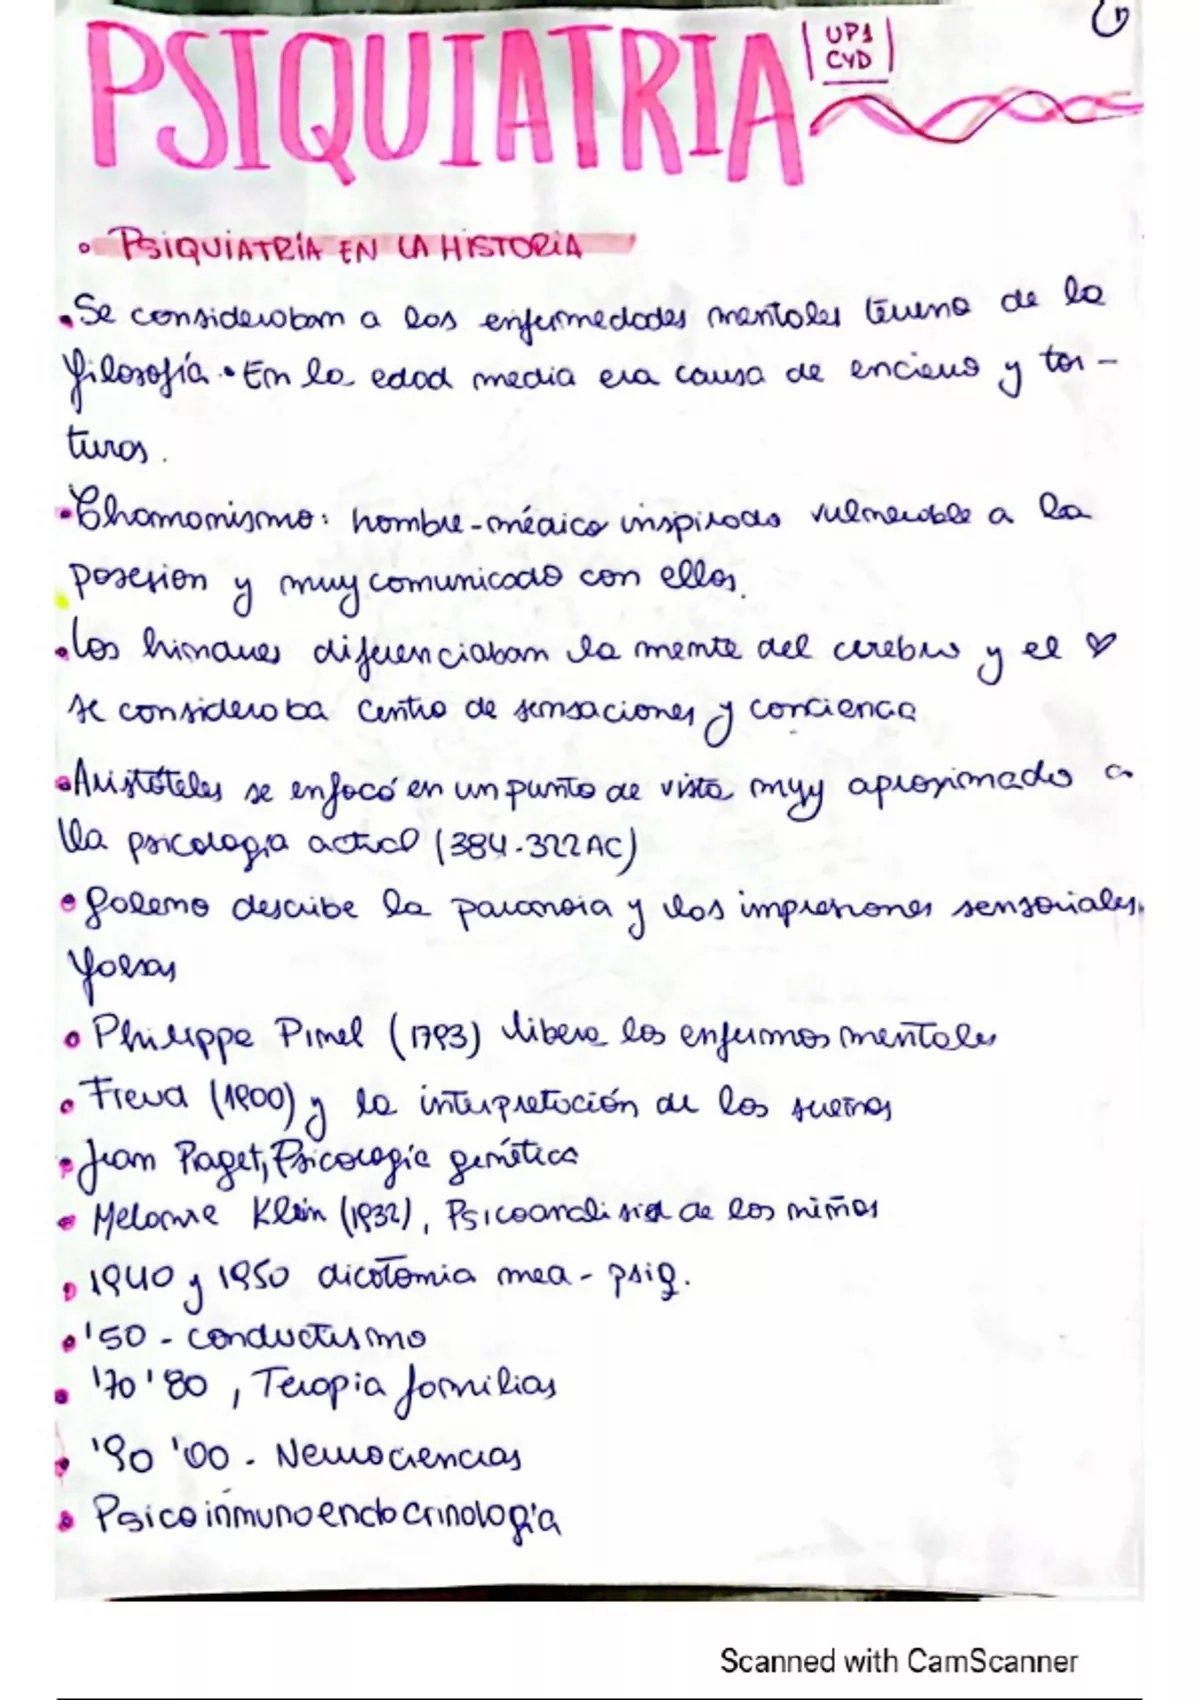 PSIQUIATRIA
UP1
CYD
PSIQUIATRÍA EN LA HISTORIA
Se considerobam a las enfermedades mentales terreno de la
filosofía. En la edad media era causa de encierro y tor-
turas.
Chamanismo: hombre-médico inspirado vulnerable a la
posesion y muy comunicado con ellos.
Los himdues diferenciaban la mente del cerebro y el ♡
se consideroba centro de sensaciones y conciencia
Aristóteles se enfocó en un punto de vista muy aproximado a
la psicologia actual (384-322AC)
Galeno describe la paranoia y los impresiones sensoriales
falsas
Philippe Pinel (1793) libera los enfermos mentales
Freud (1900) y la interpretación de los sueños
Jean Piaget, Psicologia genética
Melanie Klein (1932), Psicoanalisis de los niños
1940 y 1950 dicotomia med - psiq.
'50 - conductismo
'70 '80, Terapia familias
'90 '00 - Neurociencias
Psicoinmunoendocrinología
Scanned with CamScanner